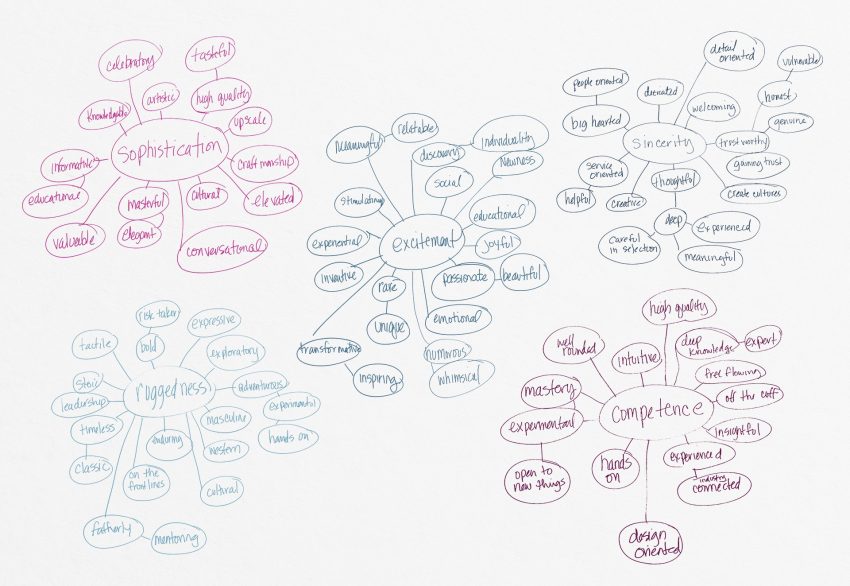 celebratory
tasteful
artistic
high quality
knowledgable
upscale
Sophistication
informative
craftmanship
educational
masterful
cultural
elevated
elegant
valuable
conversational
meaningful
relatable
discovery
individuality
newness
social
stimulating
educational
excitement
experiential
joyful
inventive
passionate
beautiful
rare
unique
emotional
transformative
inspiring
humorous
whimsical
detail
oriented
vulnerable
people oriented
honest
welcoming
big hearted
genuine
sincerity
trustworthy
service
oriented
gaining trust
thoughtful
helpful
creative
create cultures
deep
experienced
careful
in selection
meaningful
risk taker
expressive
tactile
bold
exploratory
stoic
ruggedness
adventurous
leadership
experimental
masculine
timeless
enduring
hands on
western
classic
on the
frontlines
cultural
fatherly
mentoring
high quality
well
rounded
deep
knowledge
expert
intuitive
free flowing
mastery
off the cuff
competence
experimental
insightful
experienced
hands
on
open to
new things
industry
connected
design
oriented